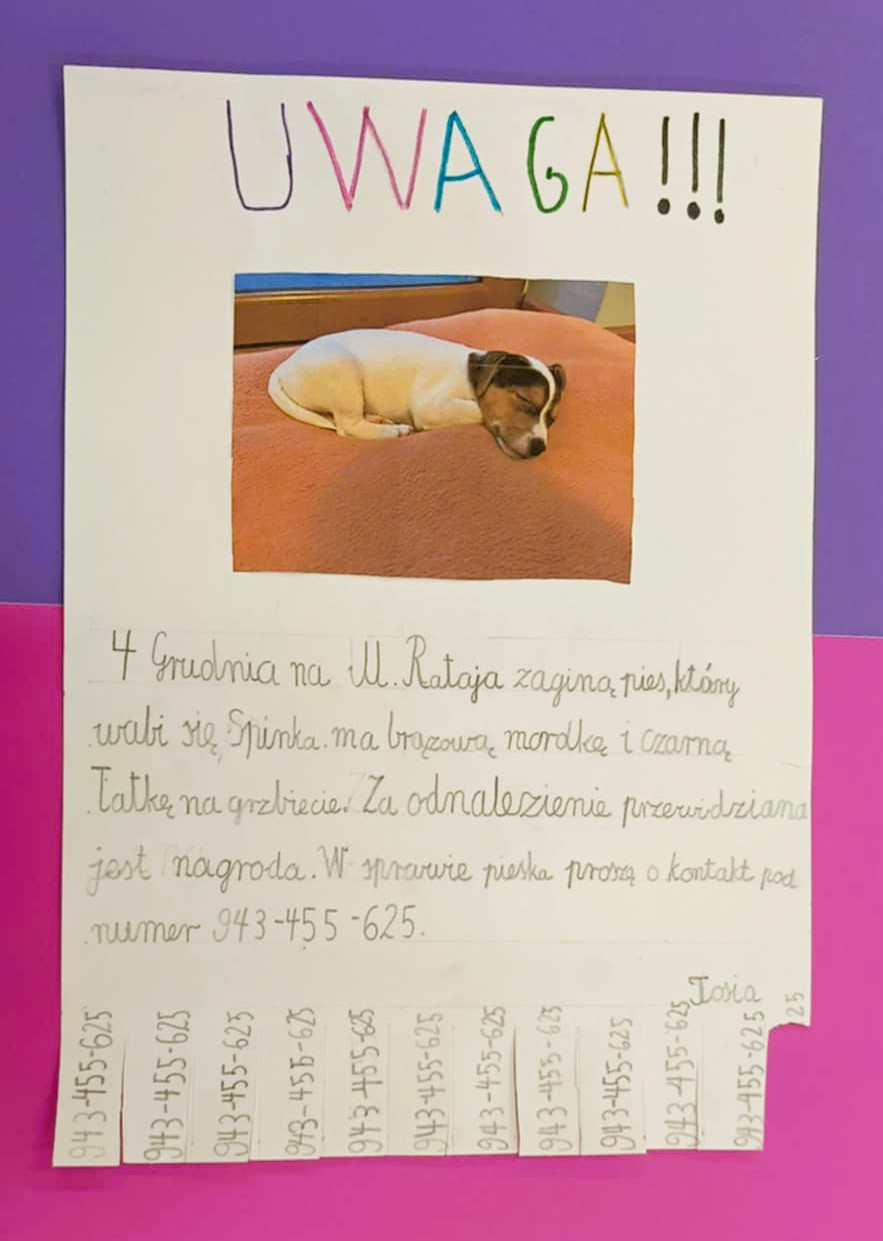 UWAGA!!!
4 Grudnia na Ul. Rataja zaginą pies, który
wabi się Spinka. ma brązową mordkę i czarną
Łatkę na grzbiecie. Za odnalezienie przewidziana
jest nagroda. W sprawie pieska proszę o kontakt pod
numer 943-455-625.
Tosia
943-455-625
943-455-625
943-455-625
943-455-625
943-455-625
943-455-625
943-455-625
943-455-625
943-455-625
943-455-625
943-455-625
25